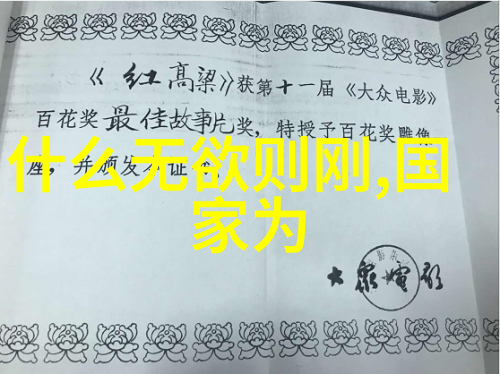 《红高粱》获第十一届《大众电影》
百花奖最佳故事片奖，特授予百花奖雕像
座，并颁发
证
什么无欲则刚,国
家为
大众电影